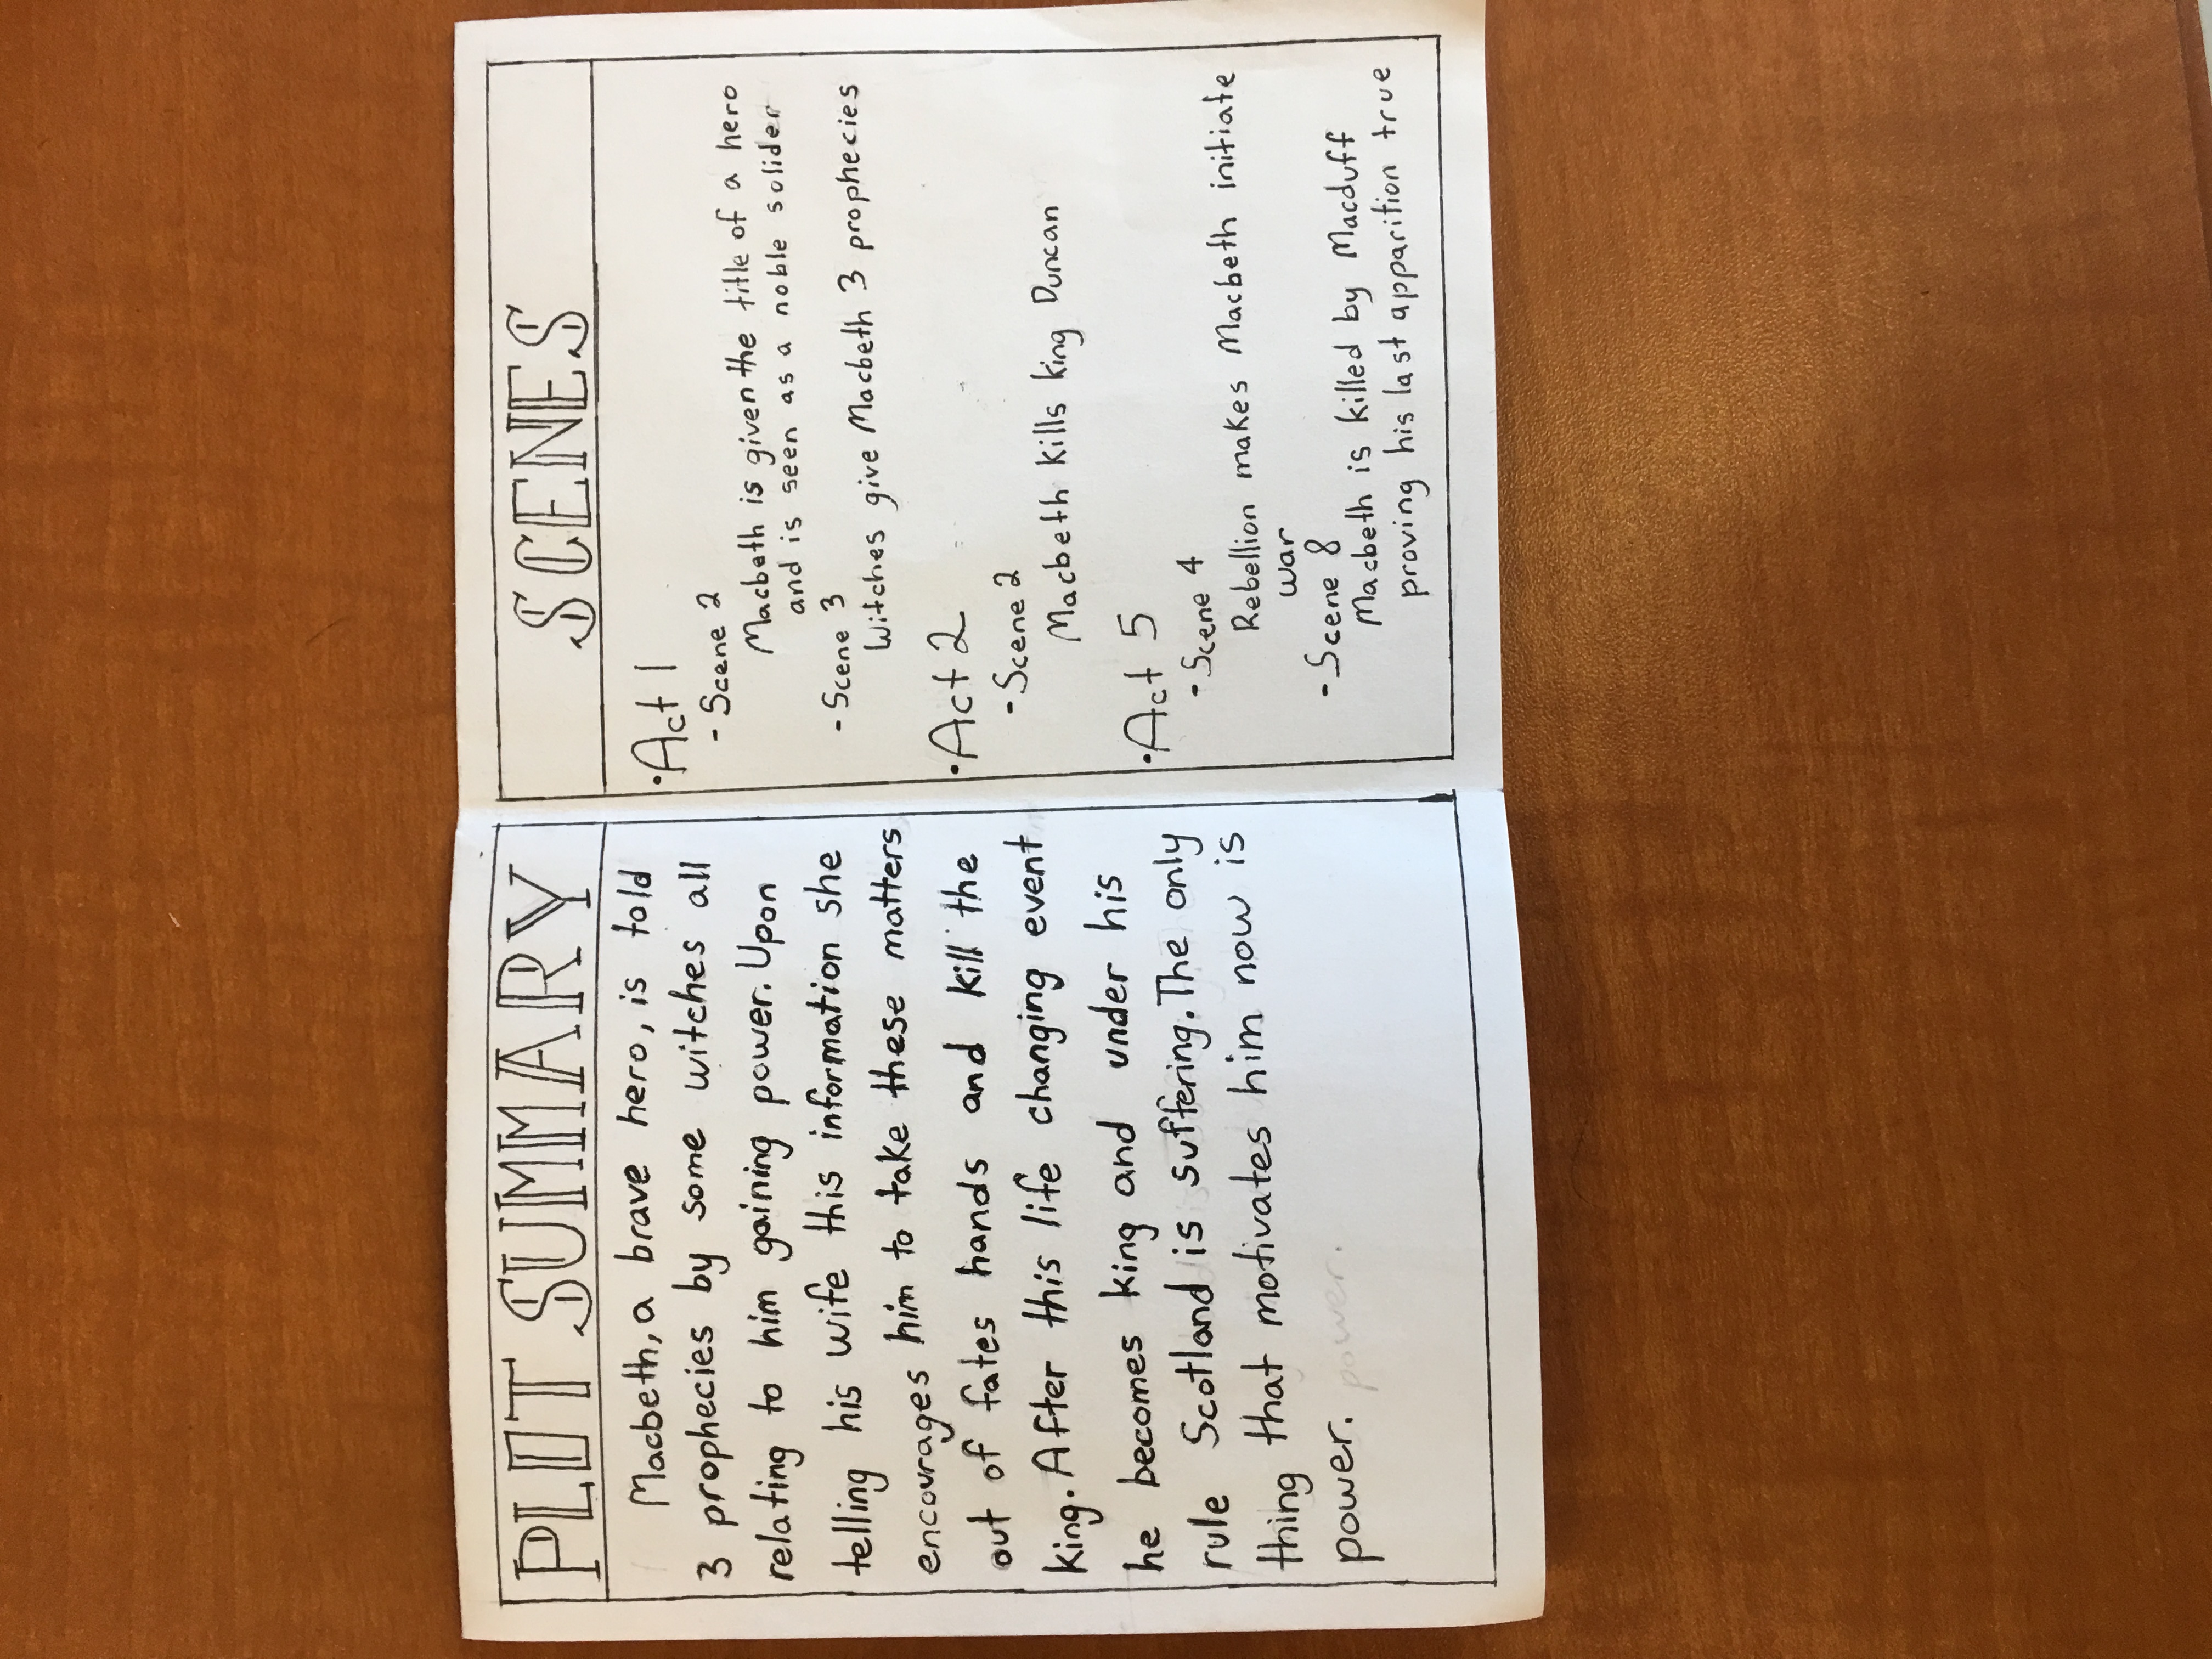 PLOT SUMMARY
Macbeth, a brave hero, is told
3 prophecies by some witches all
relating to him gaining power. Upon
telling his wife this information she
encourages him to take these matters
out of fates hands and kill the
king. After this life changing event
he becomes king and under his
rule Scotland is suffering. The only
thing that motivates him now is
power.
power.
SCENES
•Act 1
-Scene 2
Macbeth is given the title of a hero
and is seen as a noble solider
-Scene 3
Witches give Macbeth 3 prophecies
•Act 2
-Scene 2
Macbeth kills king Duncan
•Act 5
-Scene 4
Rebellion makes Macbeth initiate
war
-Scene 8
Macbeth is killed by Macduff
proving his last apparition true